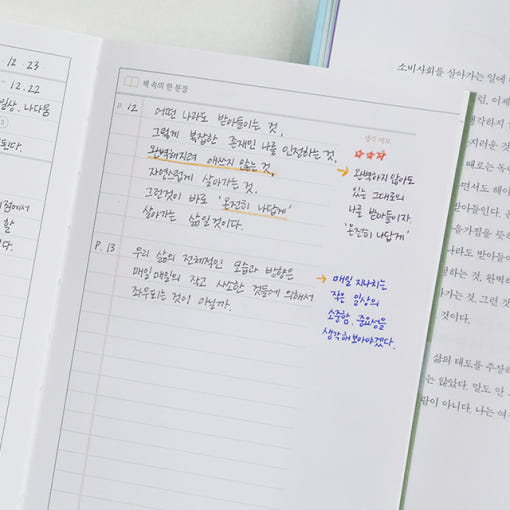 12. 23
- 12.22
일상. 나다움
된다.
점에서
할
다.
책 속의 한 문장
생각 메모
p. 12
어떤 나라도 받아들이는 것,
그렇게 복잡한 존재인 나를 인정하는 것,
완벽해지려 애쓰지 않는 것,
자연스럽게 살아가는 것,
그런것이 바로 '온전히 나답게'
살아가는 삶일 것이다.
☆☆☆
→ 완벽하지 않아도
있는 그대로의
나를 받아들이자
'온전히 나답게'
P. 13
우리 삶의 전체적인 모습과 방향은
매일매일의 작고 사소한 것들에 의해서
좌우되는 것이 아닐까.
→ 매일 지나치는
작은 일상의
소중함. 중요성을
생각해보아야겠다.
소비사회를 살아가는 일에
럼. 이제
생각하지
지러운 것
때로는 독
면서도 해
받아들인다.
음가짐을 뜻하
나라도 받아들이
하는 것, 완벽하
가는 것. 그런 것
것이다.
삶의 태도를 주장하
는 않았다. 말도 안
람이 아니다. 나는 여